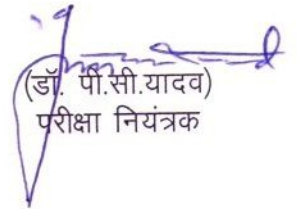 (डॉ. पी.सी.यादव)
परीक्षा नियंत्रक